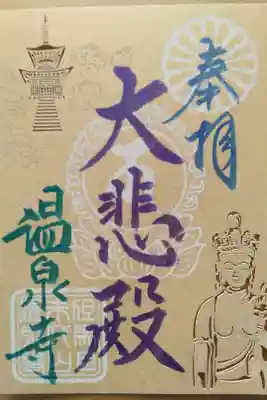 奉拝
大悲殿
温泉寺